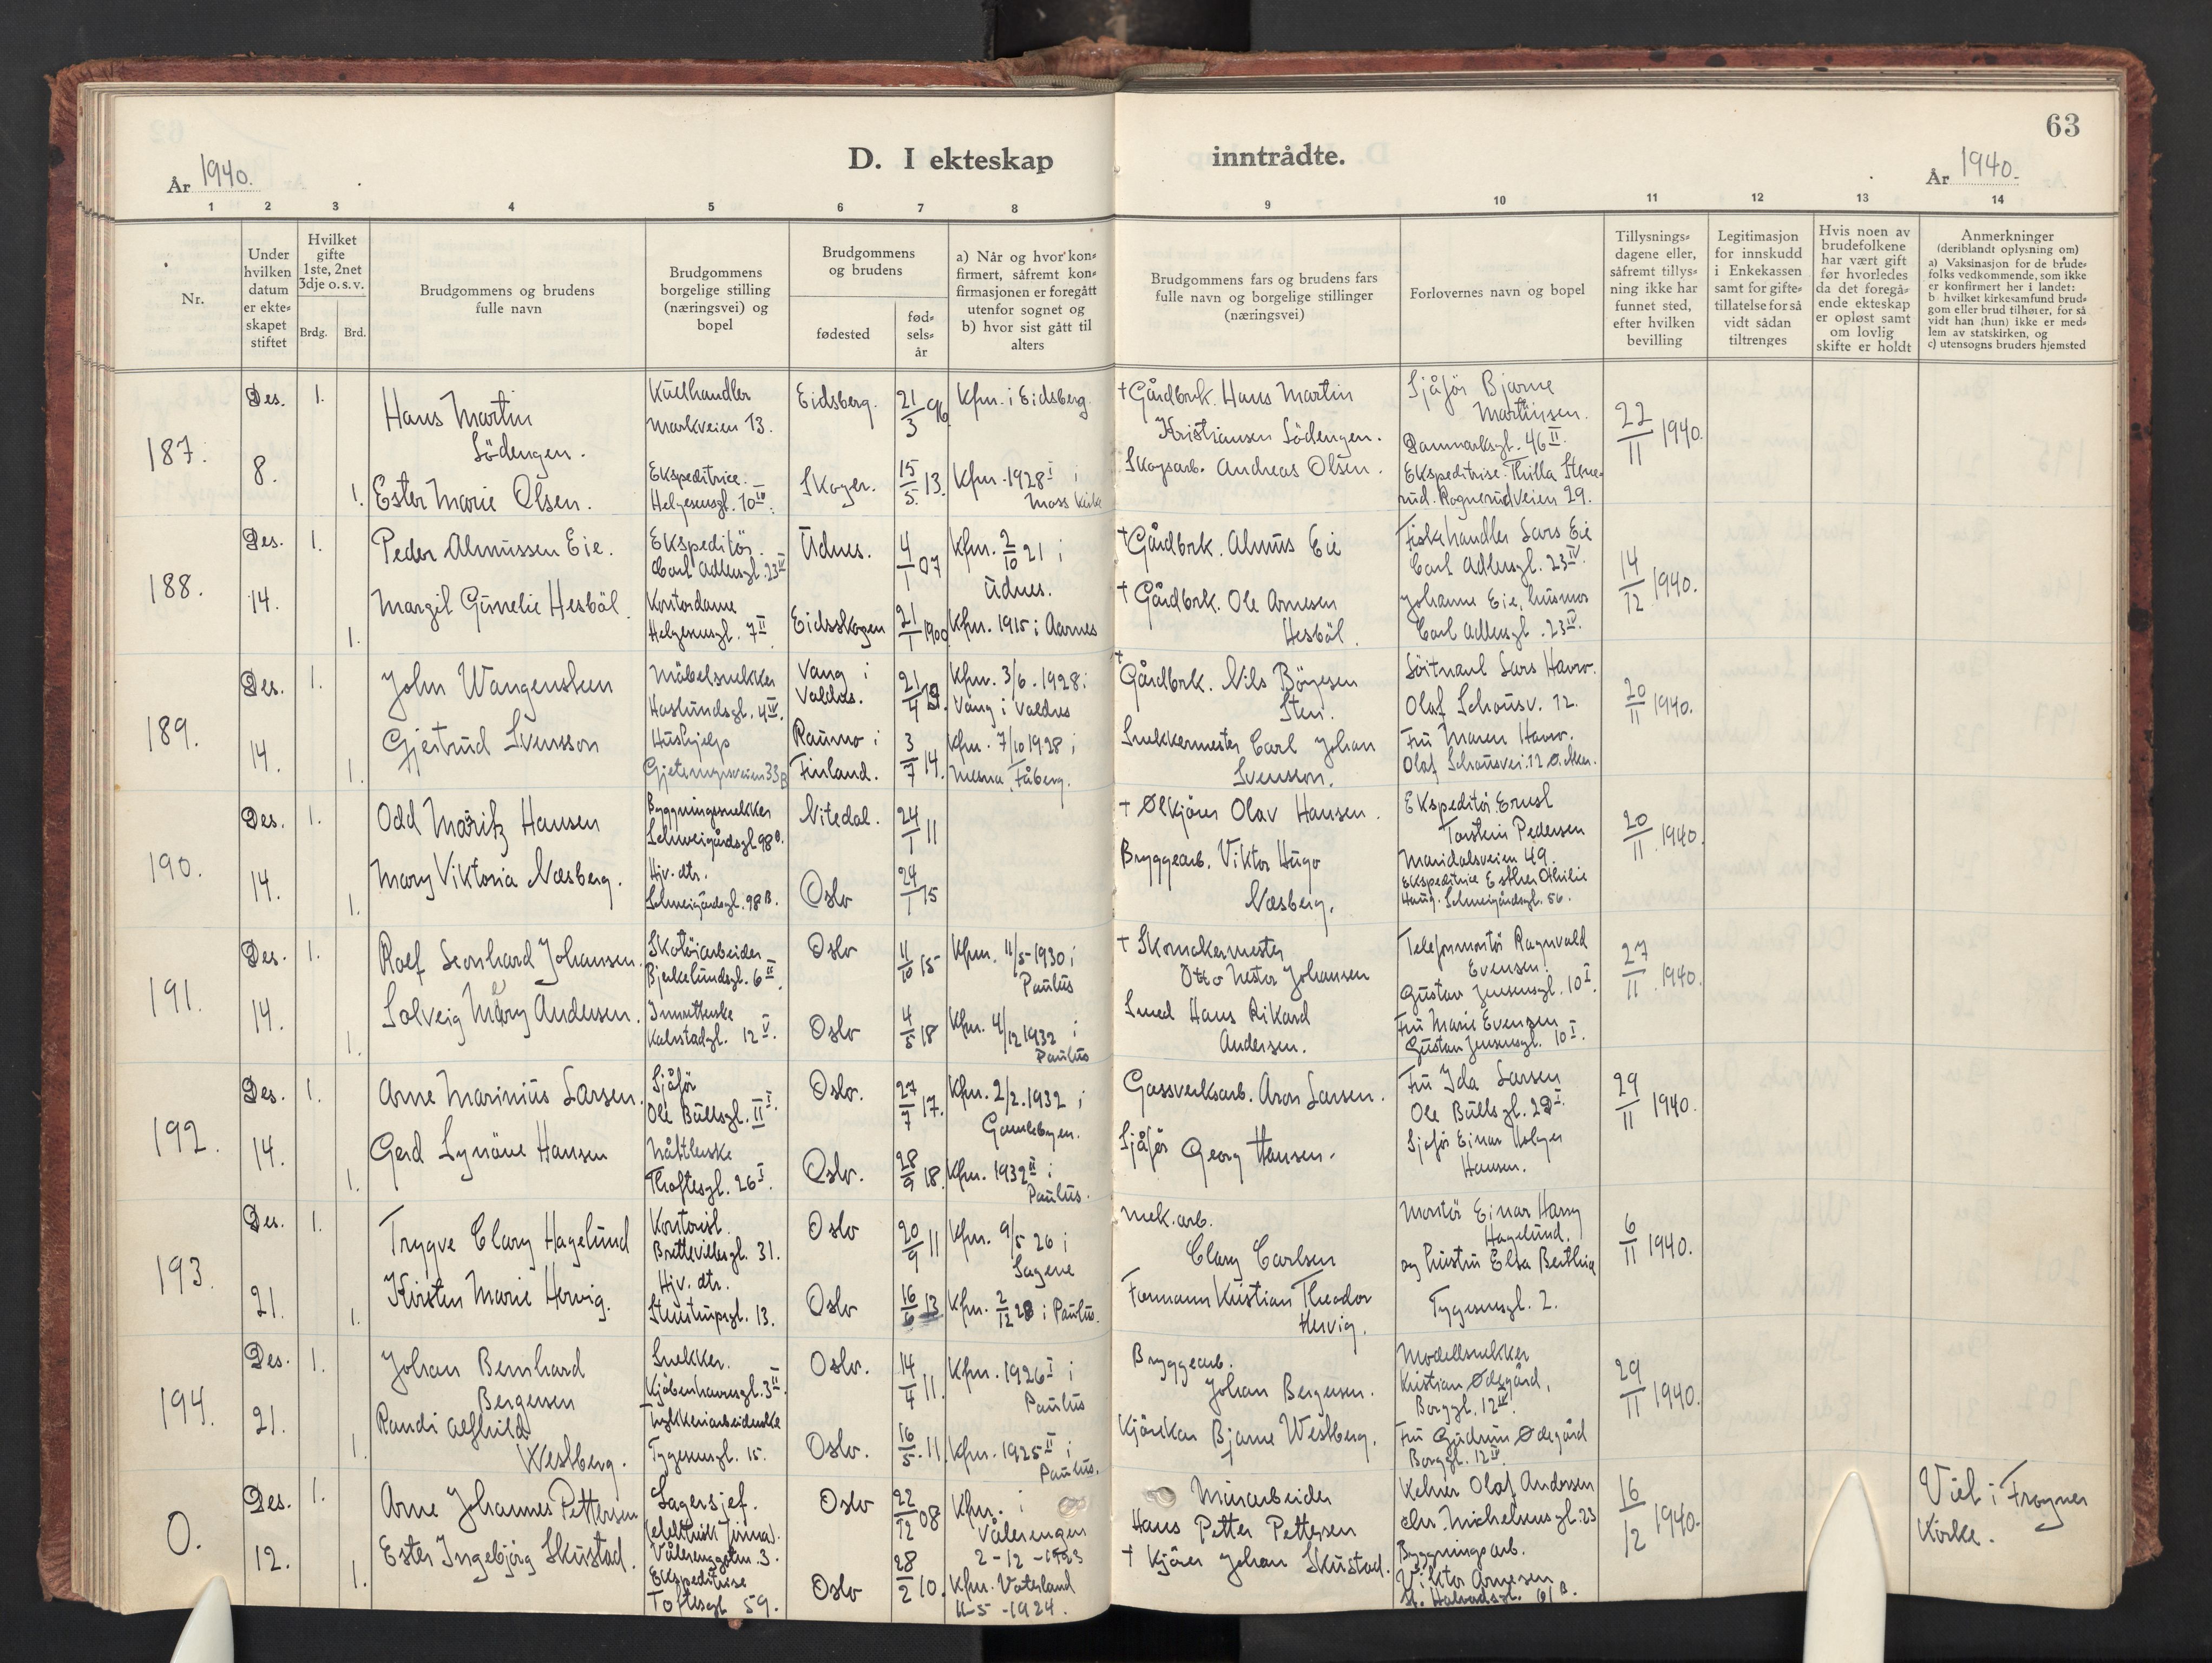 63
D. I ekteskap inntrådte.
År 1940.
År 1940.
1 2 3 4 5 6 7 8 9 10 11 12 13 14
Nr.
Under hvilken datum er ekte-skapet stiftet
Hvilket gifte 1ste, 2net 3dje o. s. v.
Brdg. Brd.
Brudgommens og brudens fulle navn
Brudgommens borgelige stilling (næringsvei) og bopel
Brudgommens og brudens
fødested
fød-sels-år
a) Når og hvor kon-firmert, såfremt kon-firmasjonen er foregått utenfor sognet og b) hvor sist gått til alters
Brudgommens fars og brudens fars fulle navn og borgelige stillinger (næringsvei)
Forlovernes navn og bopel
Tillysnings-dagene eller, såfremt tillys-ning ikke har funnet sted, efter hvilken bevilling
Legitimasjon for innskudd i Enkekassen samt for gifte-tillatelse for så vidt sådan tiltrenges
Hvis noen av brudefolkene har vært gift før hvorledes da det foregå-ende ekteskap er opløst samt om lovlig skifte er holdt
Anmerkninger (deriblandt oplysning om) a) Vaksinasjon for de brude-folks vedkommende, som ikke er konfirmert her i landet: b) hvilket kirkesamfund brud-gom eller brud tilhører, for så vidt han (hun) ikke er med-lem av statskirken, og c) utensogns bruders hjemsted
187.
Des. 8.
1.
Hans Martin
Södengen.
Kullhandler
Markveien 13.
Eidsberg.
21/3 96
Kfm. i Eidsberg.
† Gårdbrk. Hans Martin
Kristiansen Södengen.
Sjåfør Bjarne
Martinsen.
Danmarksgt. 46 II.
22/11 1940.
1. Ester Marie Olsen.
Ekspeditrice.
Helgesensgt. 10 IV.
Skoger.
15/5 13.
Kfm. 1928 I i
Moss kirke
Skogsarb. Andreas Olsen.
Ekspeditrise Thilla Stene-
rud. Rognerudveien 29.
188.
Des. 14.
1.
Peder Almussen Eie.
Ekspeditör.
Carl Adlersgt. 23 IV
Udnes.
4/1 07
Kfm. 2/10 21 i
Udnes.
† Gårdbrk. Almus Eie
Fiskehandler Lars Eie
Carl Adlersgt. 23 IV.
14/12 1940.
1. Margit Gunelie Hesböl
Kontordame
Helgesensgt. 7 II
Eidsskogen
21/1 1900
Kfm. 1915 i Aarnes
† Gårdbrk. Ole Arnesen
Hesböl.
Johanne Eie, husmor
Carl Adlersgt. 23 IV.
189.
Des. 14.
1.
John Wangensteen
Möbelsnekker
Haslundsgt. 4 IV.
Vang i
Valdres.
21/4
Kfm. 3/6. 1928 i
Vang i Valdres
† Gårdbrk. Nils Böyesen
Sten.
Lars Havro.
Olaf Schousv. 12.
20/11 1940.
1. Gjertrud Svensson
Hushjelp
Gjetemyrsveien 33B
Raumo i
Finland.
3/7 14.
Kfm. 7/10 1928 i
Mesna, Fåberg.
Snekkermester Carl Johan
Svensson.
Fru Maren Havro.
Olaf Schousvei. 12 Ø. Aker.
190.
Des. 14.
1.
Odd Moritz Hansen
Bygningssnekker
Schweigårdsgt 98 B.
Nitedal.
24/1 11
† Ølkjörer Olav Hansen.
Ekspeditör Ernst
Torstein Pedersen
Maridalsveien 49.
20/11. 1940.
1. Mary Viktoria Næsberg.
Hjv. dtr.
Schweigårdsgt. 98 B.
Oslo
24/1 15
Bryggearb. Viktor Hugo
Næsberg.
Ekspeditrice Esther Othilie
Haug. Schweigårdsgt. 56.
191.
Des. 14.
1.
Rolf Leonhard Johansen.
Skotöiarbeider
Bjerkelundsgt. 6 II.
Oslo
11/10 15
Kfm. 11/5-1930 i
Paulus
† Skomakermester
Otto Nestor Johansen
Telefonmontör Ragnvald
Evensen.
Gustav Jensensgt. 10 I.
27/11. 1940.
1. Solveig Mary Andersen.
Kalstadgt. 12 V.
Oslo
4/5 18
Kfm. 4/12 1932 i
Paulus
Smed Hans Rikard
Andersen.
Fru Marie Evensen
Gustav Jensensgt. 10 I.
192.
Des. 14.
1.
Arne Marinius Larsen.
Sjåför
Ole Bullsgt. II I.
Oslo.
27/7 17.
Kfm. 2/2. 1932 i
Gamlebyen.
Gassverksarb. Aron Larsen.
Fru Ida Larsen
Ole Bullsgt. 29 I.
29/11 1940.
1. Gerd Synöve Hansen
Thoftesgt. 26 I.
Oslo.
28/9 18.
Kfm. 1932 II i
Paulus.
Sjåför Georg Hansen.
Sjåför Einar Holger
Hansen.
193.
Des. 21.
1.
Trygve Clary Hagelund
Kontorist.
Brettevillesgt. 31.
Oslo
20/9 11
Kfm. 9/5 26 i
Sagene
Mek. arb.
Clary Carlsen
Montör Einar Harry
Hagelund.
6/11 1940.
1. Kirsten Marie Hervig.
Hjv. dtr.
Steenstrupsgt. 13.
Oslo
16/6 13
Kfm. 2/12 28 i Paulus.
Formann Kristian Theodor
Hervig.
og hustru Elsa Berthie
Tygesensgt. 2.
194.
Des. 21.
1.
Johan Bernhard
Bergersen
Snekker.
Kjöbenhavnsgt. 3 II.
Oslo.
14/4 11.
Kfm. 1926 I i
Paulus
Bryggearb.
Johan Bergersen.
Modellsnekker
Kristian Ødegård,
Borggt. 12 IV.
29/11 1940.
1. Randi Alfhild
Westberg.
Trykkeriarbeiderske
Tygesensgt. 15.
Oslo.
16/5. 11.
Kfm. 1925 II i
Paulus.
Bjarne Westberg.
Fru Gudrun Ødegård
Borggt. 12 IV.
0.
Des. 12.
1.
Arne Johannes Pettersen
Lagersjef.
(elektrisk firma).
Vålerenggaten. 3.
Oslo
22/12 08
Kfm. i
Vålerengen
2-12-1923
Murarbeider
Hans Petter Pettersen
Kelner Olaf Andersen
Chr. Michelsensgt. 23
16/12 1940.
Viet i Frogner
Kirke.
1. Ester Ingebjörg Skustad.
Ekspeditrise
Toftesgt 59.
Oslo
28/2 10.
Kfm. Vaterland
11-5-1924.
† Kjörer Johan Skustad.
Bygningsarb.
Viktor Arnesen
St. Halvardsgt. 61 B.